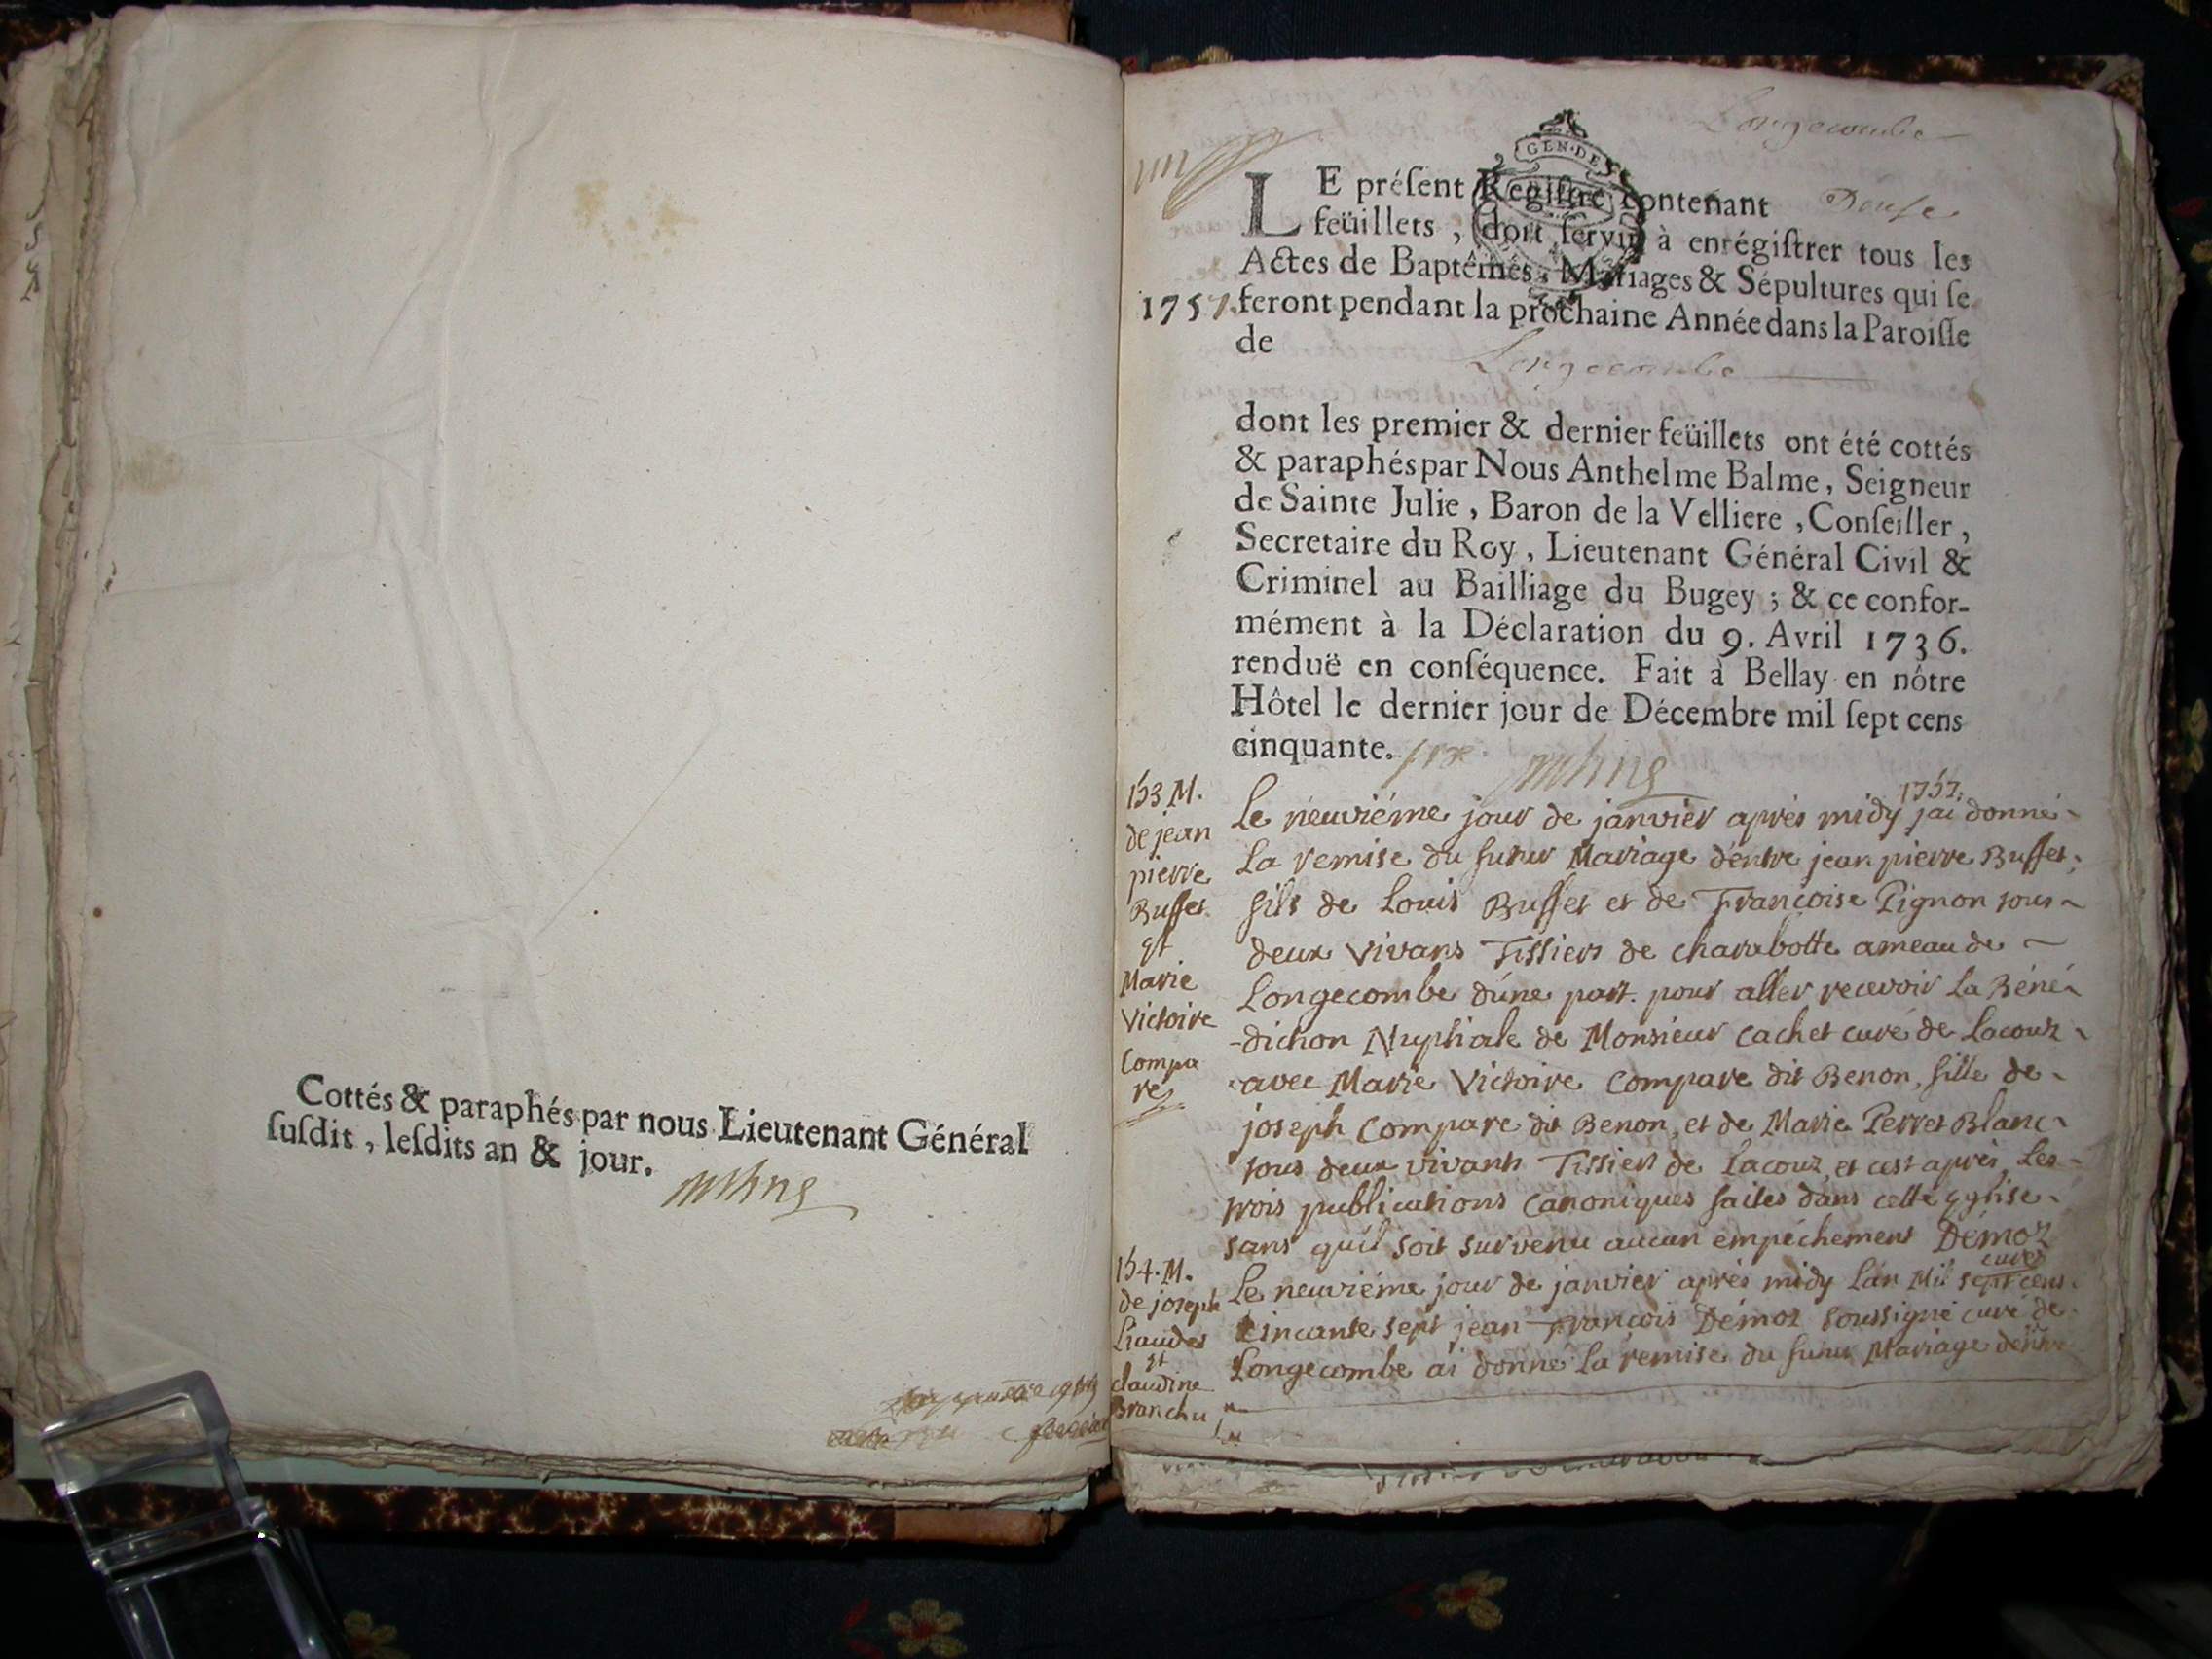 Cottés & paraphés par nous Lieutenant Général
ſuſdit, leſdits an & jour.
Longecombe
GEN·DE
LE préſent Regiſtre contenant Douſe
feüillets, doit ſervir à enrégiſtrer tous les
Actes de Baptêmes, Mariages & Sépultures qui ſe
1757. feront pendant la prochaine Année dans la Paroiſſe
de Longecombe
dont les premier & dernier feüillets ont été cottés
& paraphés par Nous Anthelme Balme, Seigneur
de Sainte Julie, Baron de la Velliere, Conſeiller,
Secretaire du Roy, Lieutenant Général Civil &
Criminel au Bailliage du Bugey; & ce confor-
mément à la Déclaration du 9. Avril 1736.
renduë en conſéquence. Fait à Bellay en nôtre
Hôtel le dernier jour de Décembre mil ſept cens
cinquante.
153 M.
de jean
pierre
Buffet
et
Marie
Victoire
Compa
re
1757.
Le neuviéme jour de janvier aprés midy jai donné
La remise du futur Mariage d'entre jean pierre Buffet,
fils de Louis Buffet et de Françoise Pignon tous
deux vivans Tissiers de charabotte ameau de
Longecombe d'une part. pour aller recevoir La Béné
-diction Nuptiale de Monsieur cachet curé de Lacoux
avec Marie Victoire Compare dit Benon, fille de
joseph Compare dit Benon, et de Marie Perret Blanc
tous deux vivants Tissiers de Lacoux, et cest aprés Les
trois publications Canoniques faites dans cette Eglise
sans quil soit survenu aucun empéchement Démoz
curé
154. M.
de joseph
Liaudet
et
claudine
Branchu
Le neuviéme jour de janvier aprés midy Lan Mil sept cens
cincante sept jean François Démoz soussigné curé de
Longecombe ai donné La remise du futur Mariage d'entre